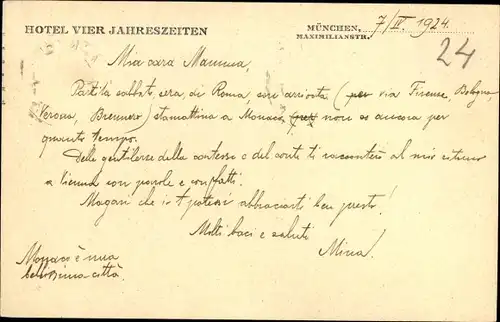 HOTEL VIER JAHRESZEITEN
MÜNCHEN, 7/IV. 1924.
MAXIMILIANSTR.
24
Mia cara Mamma,
Partita sabbato sera, di Roma, son arrivata (per via Firenze, Bologna,
Verona, Brennero) stamattina a Monaco, (per non so ancora per
quanto tempo.
Delle gentilezze della contessa e del conte ti racconterò al mio ritorno
a Vienna con parole e con fatti.
Magari che io t potessi abbracciarti ben presto!
Molti baci e saluti
Mina!
Monaco è una
bellissima città.